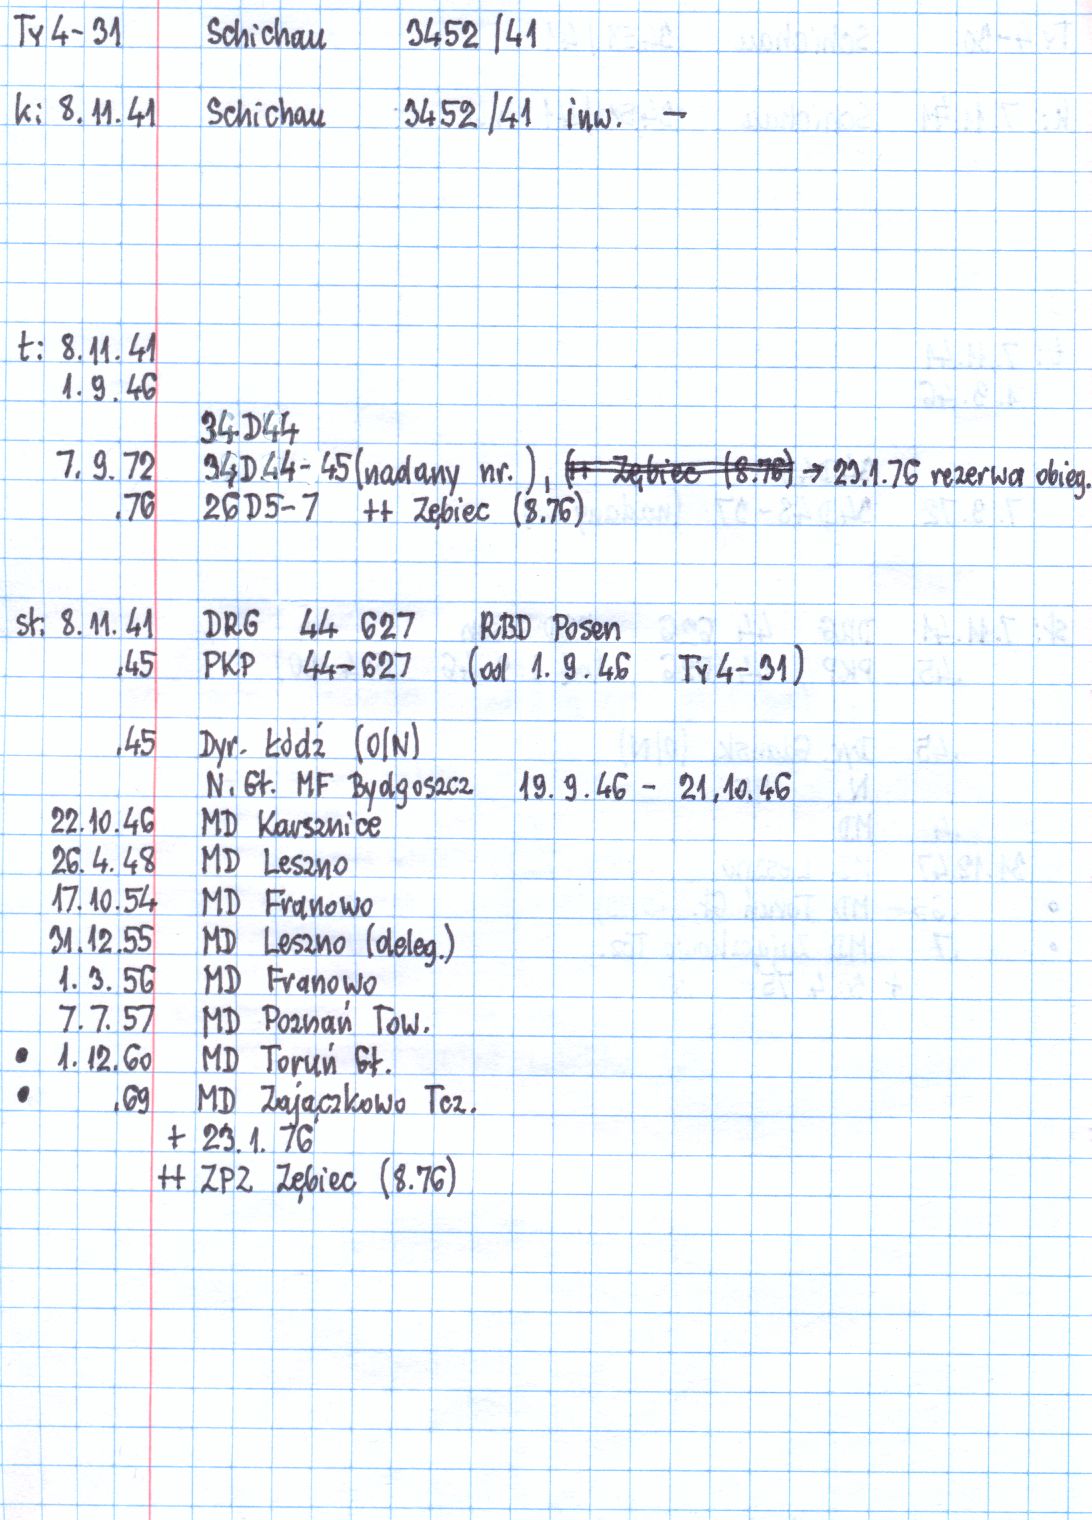 Ty4-31 Schichau 3452/41
k: 8.11.41 Schichau 3452/41 inw. —
t: 8.11.41
1.9.46
34D44
7.9.72 34D44-45 (nadany nr.), (++ Zębiec (8.76) → 23.1.76 rezerwa obieg.
.76 26D5-7 ++ Zębiec (8.76)
st: 8.11.41 DRG 44 627 RBD Posen
.45 PKP 44-627 (od 1.9.46 Ty4-31)
.45 Dyr. Łódź (O/N)
N. Gł. MF Bydgoszcz 19.9.46 - 21.10.46
22.10.46 MD Karsznice
26.4.48 MD Leszno
17.10.54 MD Franowo
31.12.55 MD Leszno (deleg.)
1.3.56 MD Franowo
7.7.57 MD Poznań Tow.
• 1.12.60 MD Toruń Gł.
• .69 MD Zajączkowo Tcz.
+ 23.1.76
++ ZPZ Zębiec (8.76)